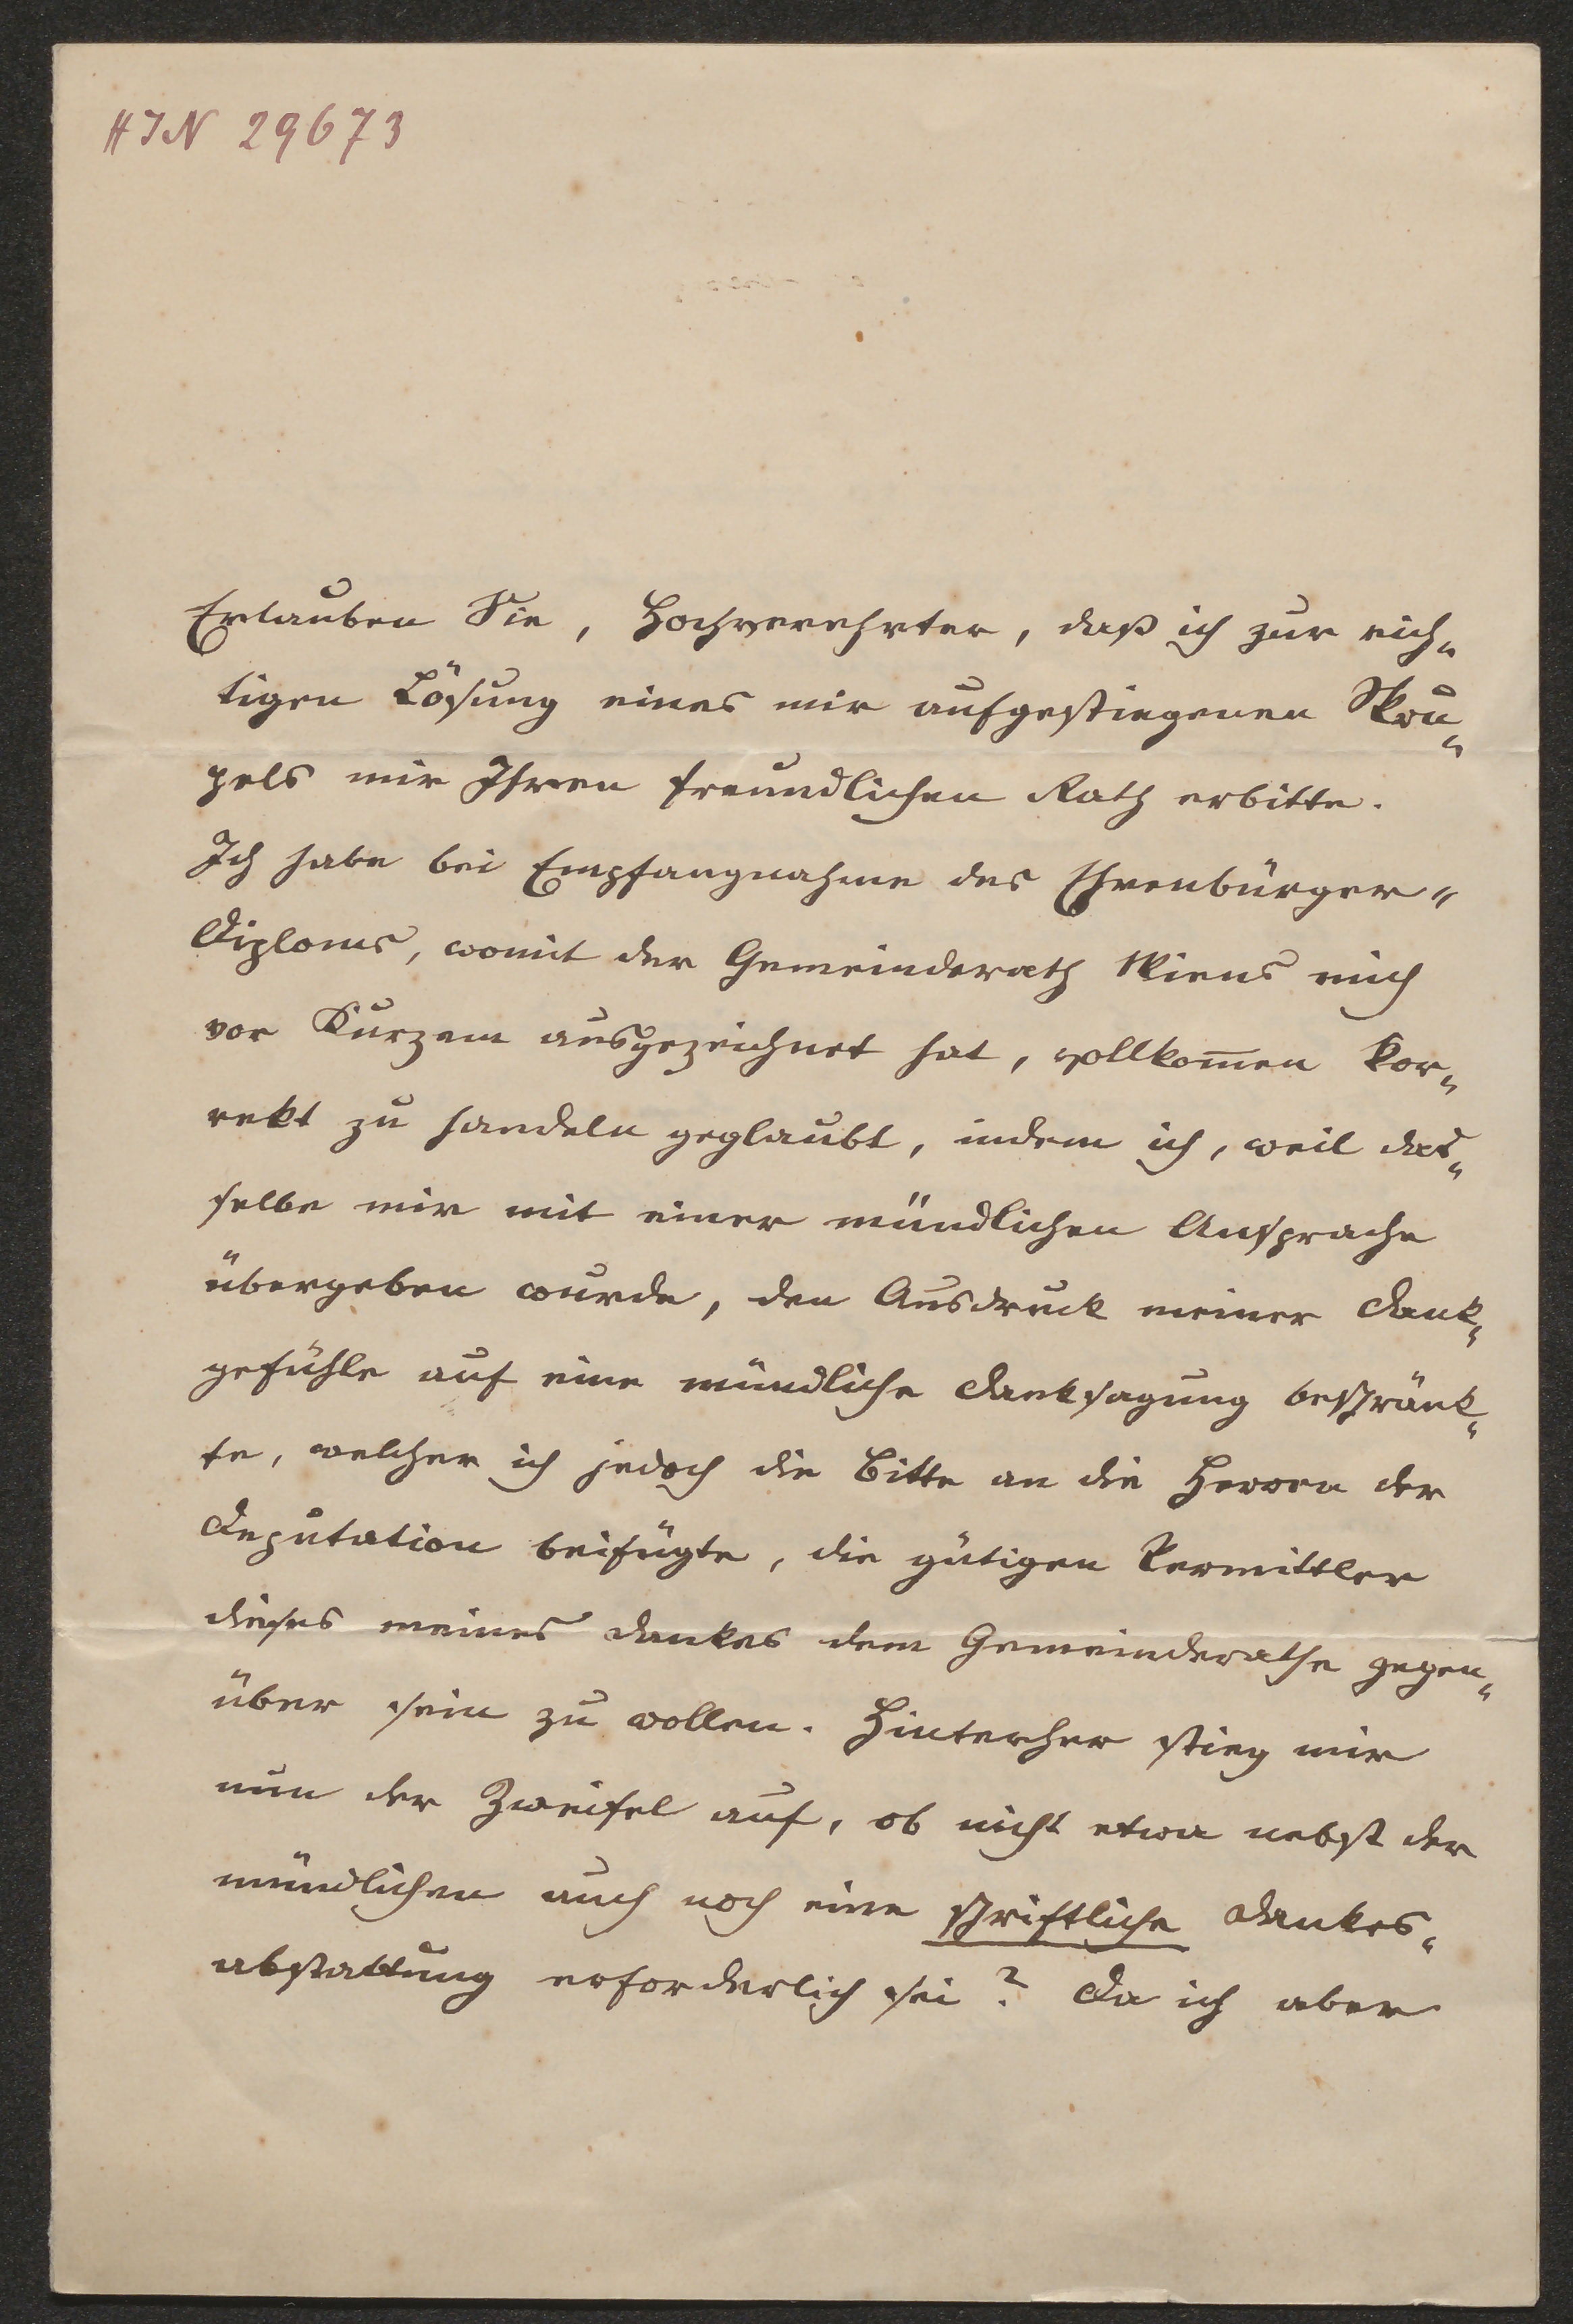 HIN 29673
Erlauben Sie, Hochverehrter, daß ich zur rich„
tigen Lösung eines mir aufgestiegenen Skru„
pels mir Ihren freundlichen Rath erbitte.
Ich habe bei Empfangnahme des Ehrenbürger„
Diploms, womit der Gemeinderath Wiens mich
vor Kurzem ausgezeichnet hat, vollkom̄en kor„
rekt zu handeln geglaubt, indem ich, weil das„
selbe mir mit einer mündlichen Ansprache
übergeben wurde, den Ausdruck meiner Dank„
gefühle auf eine mündliche Danksagung beschränk„
te, welcher ich jedoch die Bitte an die Herren der
Deputation beifügte, die gütigen Vermittler
dieses meines Dankes dem Gemeinderathe gegen„
über sein zu wollen. Hinterher stieg mir
nun der Zweifel auf, ob nicht etwa nebst der
mündlichen auch noch eine schriftliche Dankes„
abstattung erforderlich sei? Da ich aber